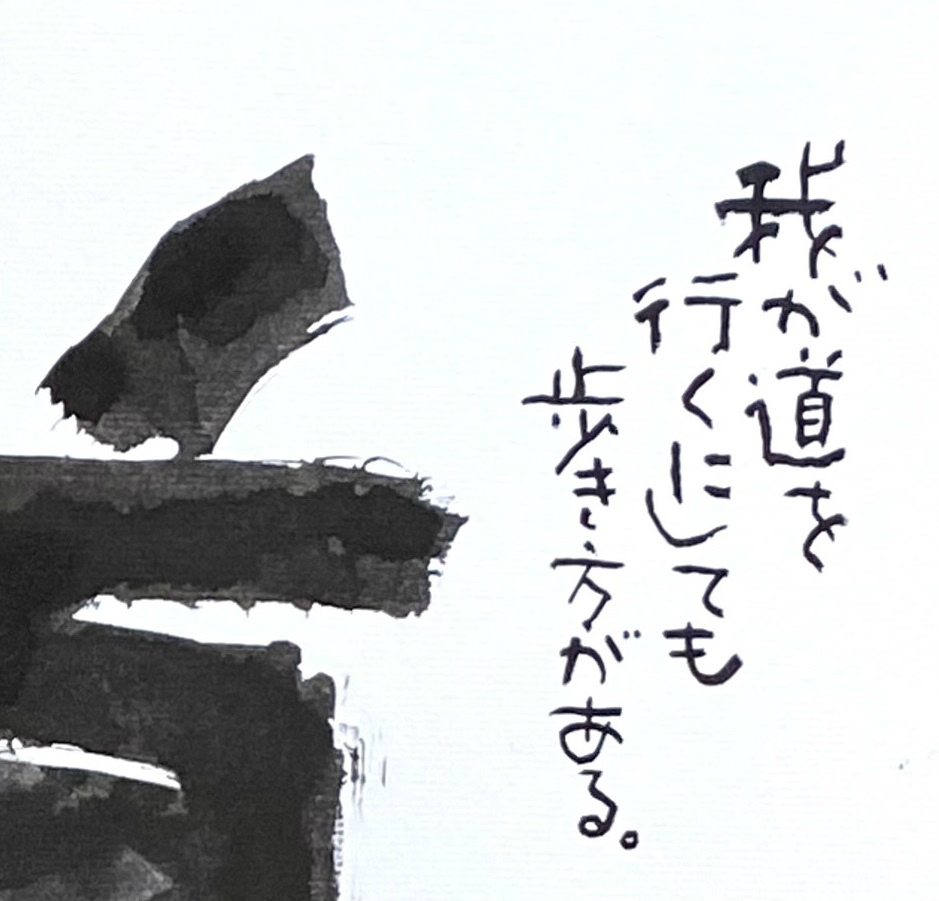 我が道を
行くにしても
歩き方がある。